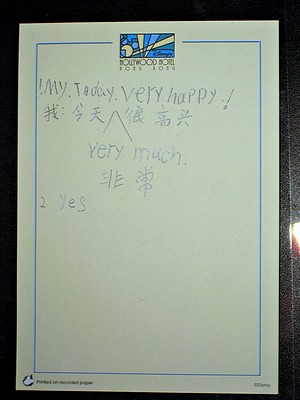 Disney's
HOLLYWOOD HOTEL
HONG KONG
! My. Today. Very happy!
我: 今天 很 高兴
very much.
非 常
2 Yes
Printed on recycled paper
©Disney